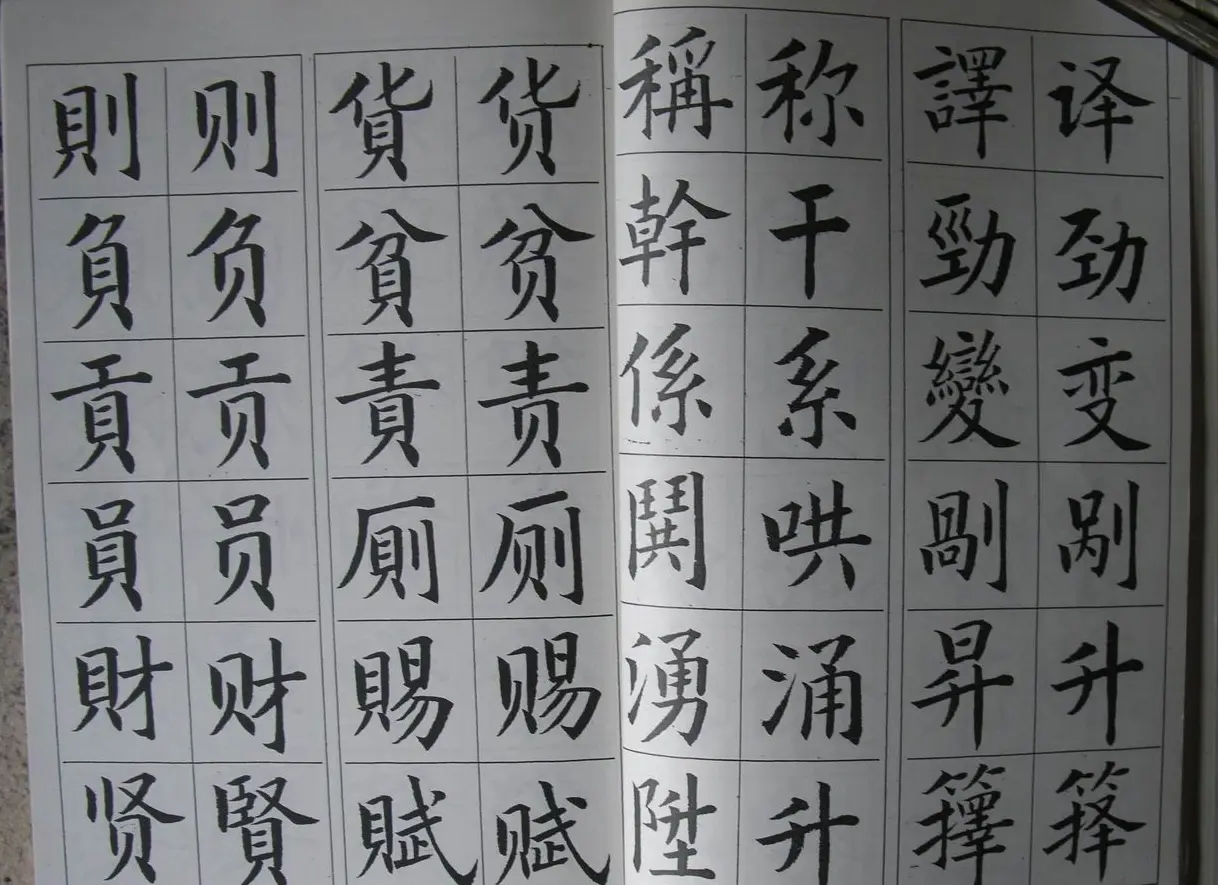 則 则 貨 货
負 负 貧 贫
貢 贡 責 责
員 员 厠 厕
財 财 賜 赐
贤 賢 賦 赋
稱 称 譯 译
幹 干 勁 劲
係 系 變 变
鬨 哄 剮 剐
湧 涌 昇 升
陞 升 籜 箨